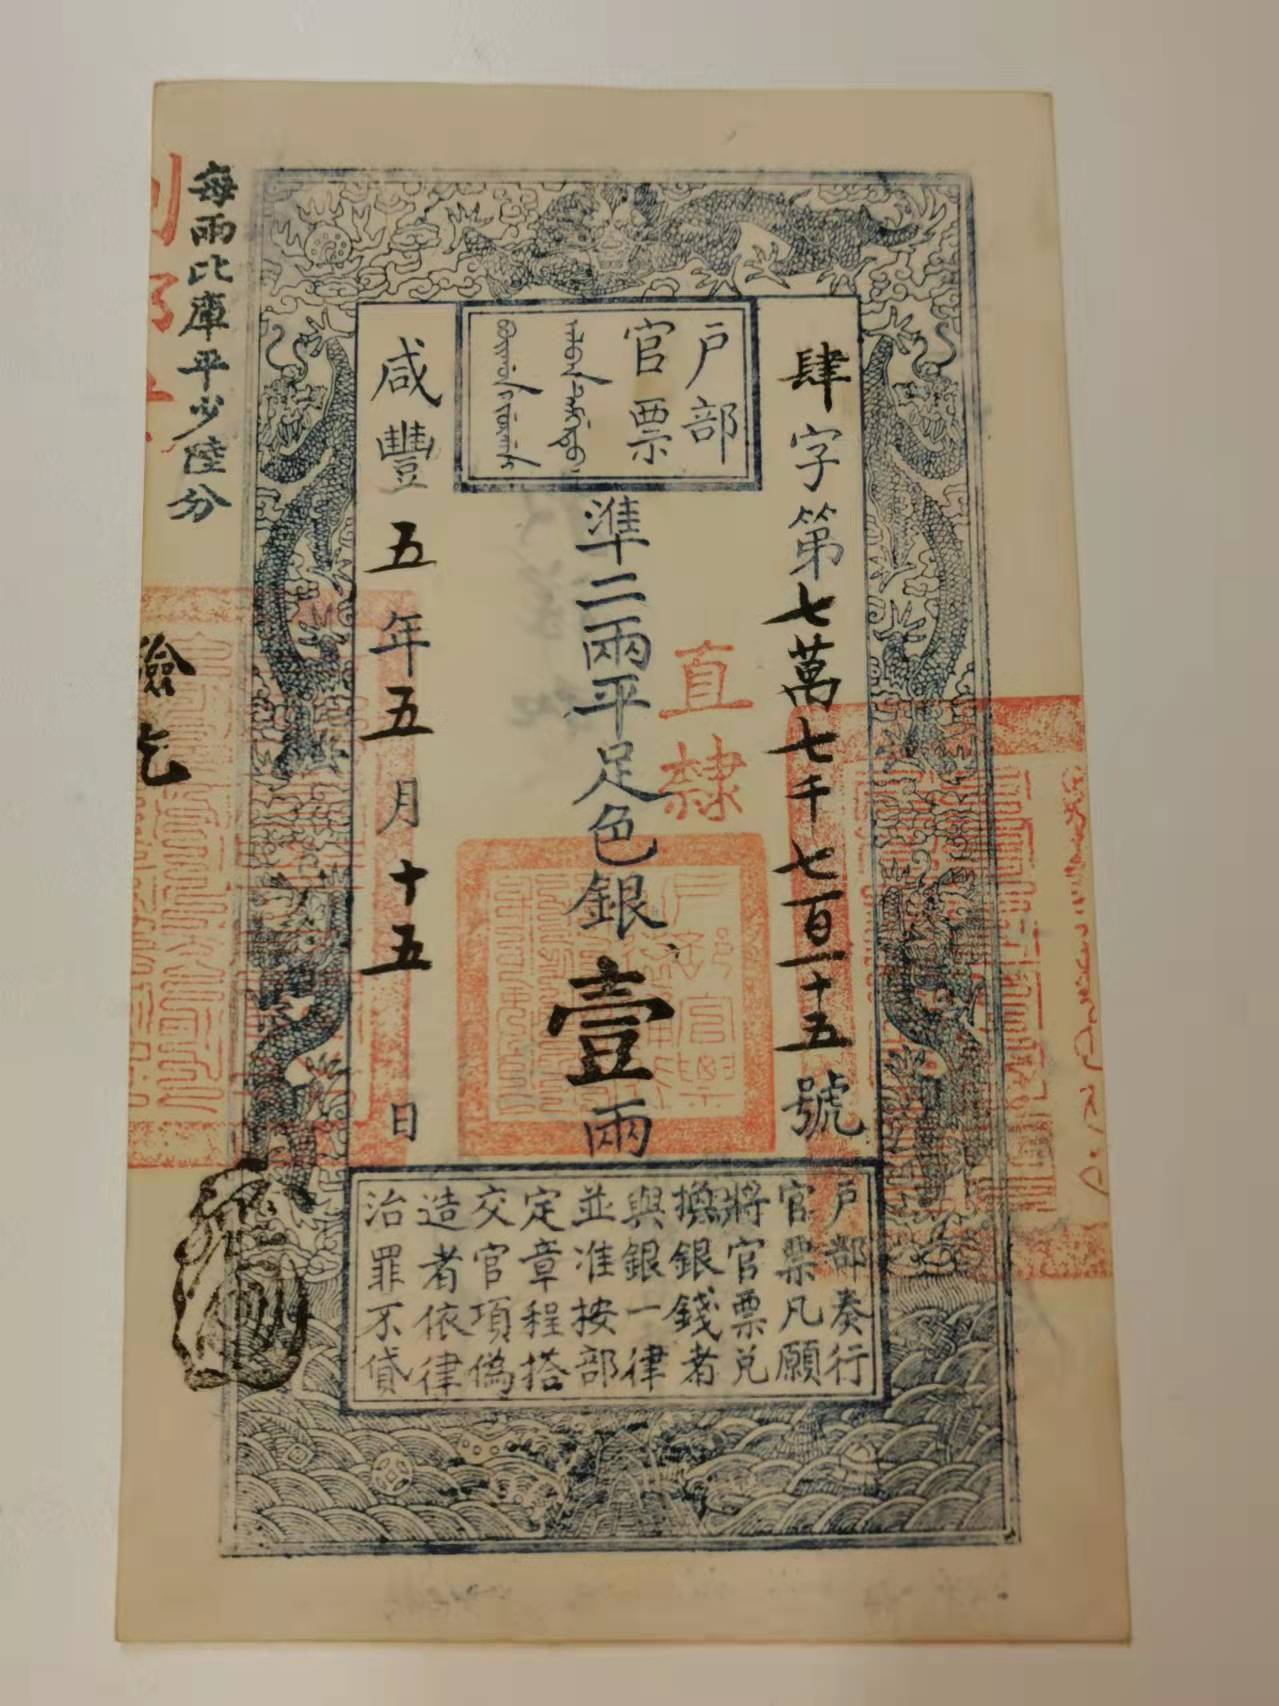 肆字第七萬七千七百一十五號
戶部
官票
直隸
準二兩平足色銀壹兩
咸豐五年五月十五日
戶部奏行
官票凡願
將官票兌
換銀錢者
與銀一律
並准按部
定章程搭
交官項偽
造者依律
治罪不貸
每兩比庫平少陸分